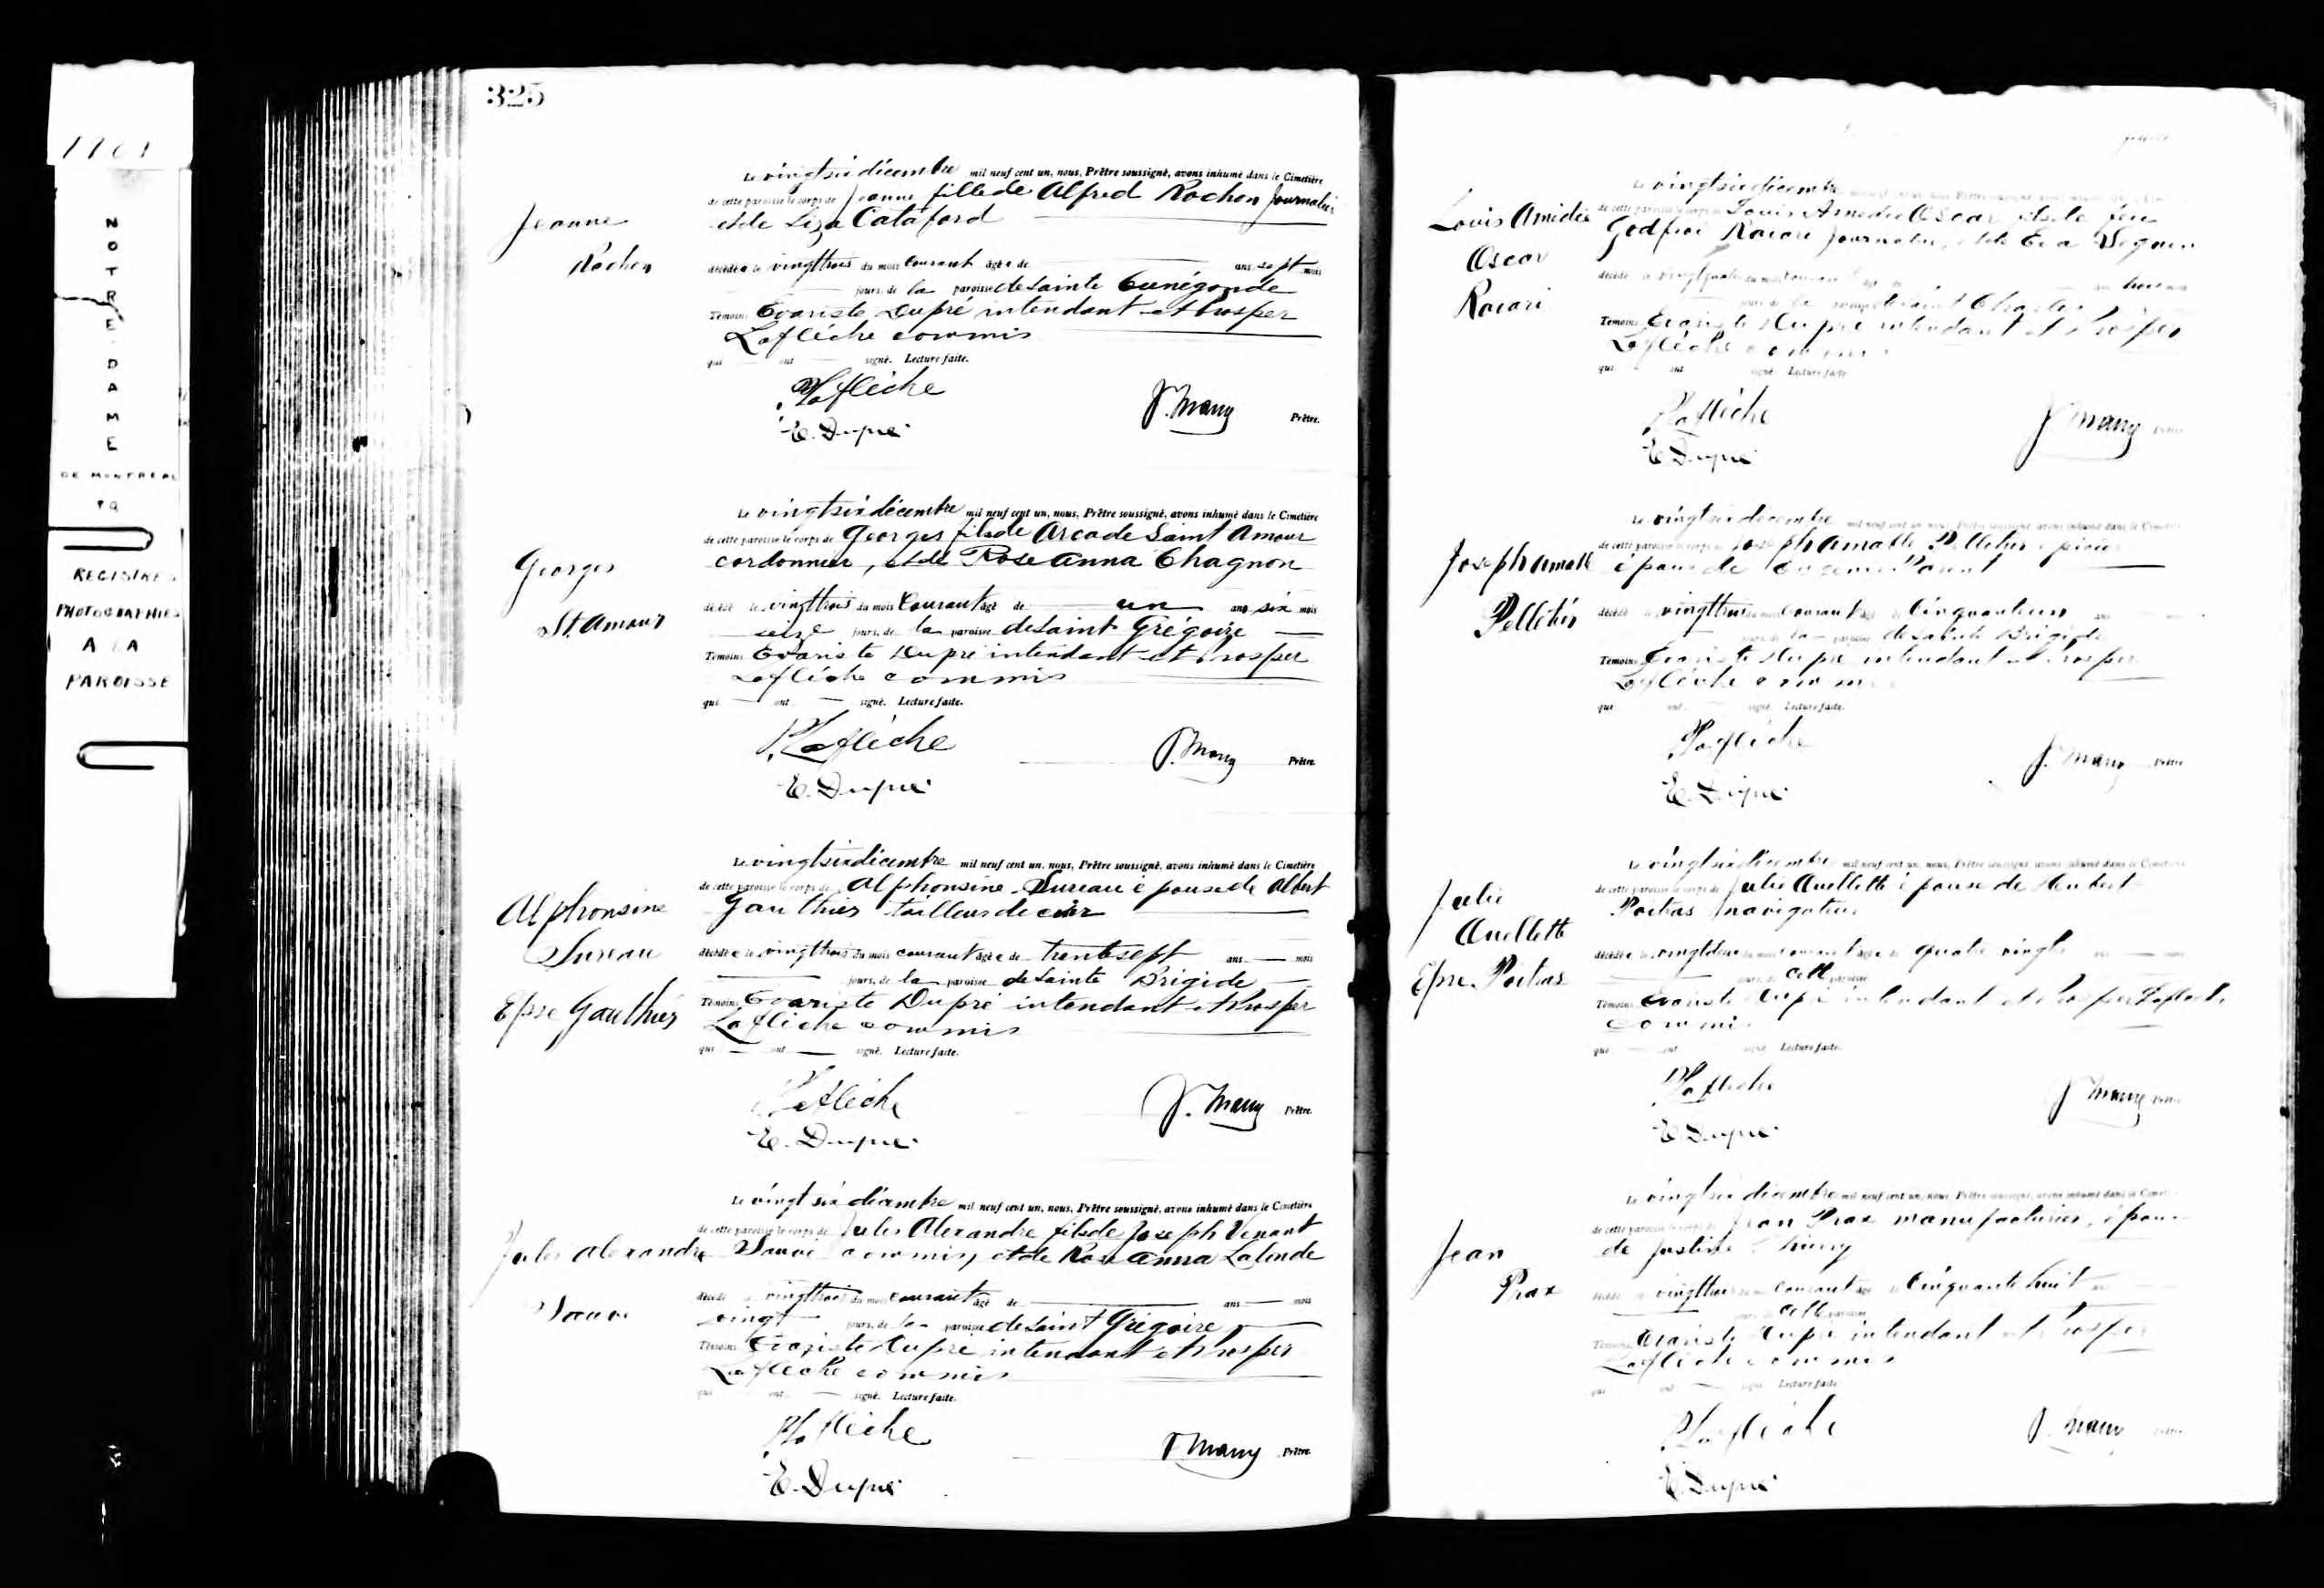 1901
NOTRE-DAME
DE MONTREAL
REGISTRES
PHOTOGRAPHIES
A LA
PAROISSE
325
Jeanne
Rochon
Le vingtsix décembre mil neuf cent un, nous, Prêtre soussigné, avons inhumé dans le Cimetière
de cette paroisse le corps de Jeanne fille de Alfred Rochon Journalier
et de Liza Cataford
décédée le vingttrois du mois courant âgée de ans sept mois
jours, de la paroisse de Sainte Cunégonde
Témoins Evariste Dupré intendant et Prosper
Laflèche commis
qui ont signé. Lecture faite.
P. Laflèche
E. Dupré
J. Many Prêtre.
Georges
St. Amour
Le vingtsix décembre mil neuf cent un, nous, Prêtre soussigné, avons inhumé dans le Cimetière
de cette paroisse le corps de Georges fils de Arcade Saint Amour
cordonnier, et de Rose Anna Chagnon
décédé le vingttrois du mois courant âgé de un ans six mois
seize jours, de la paroisse de Saint Grégoire
Témoins Evariste Dupré intendant et Prosper
Laflèche commis
qui ont signé. Lecture faite.
P. Laflèche
E. Dupré
J. Many Prêtre.
Alphonsine
Sureau
Epse Gauthier
Le vingtsix décembre mil neuf cent un, nous, Prêtre soussigné, avons inhumé dans le Cimetière
de cette paroisse le corps de Alphonsine Sureau épouse de Albert
Gauthier tailleur de cuir
décédée le vingttrois du mois courant âgée de trentesept ans mois
jours, de la paroisse de Sainte Brigide
Témoins Evariste Dupré intendant et Prosper
Laflèche commis
qui ont signé. Lecture faite.
P. Laflèche
E. Dupré
J. Many Prêtre.
Jules Alexandre
Sauvé
Le vingt six décembre mil neuf cent un, nous, Prêtre soussigné, avons inhumé dans le Cimetière
de cette paroisse le corps de Jules Alexandre fils de Joseph Venant
Sauvé commis, et de Rose Anna Lalonde
décédé le vingttrois du mois courant âgé de ans mois
vingt jours, de la paroisse de Saint Grégoire
Témoins Evariste Dupré intendant et Prosper
Laflèche commis
qui ont signé. Lecture faite.
P. Laflèche
E. Dupré
J. Many Prêtre.
Louis Amédée
Oscar
Racari
Le vingtsix décembre
de cette paroisse le corps de Louis Amédée Oscar fils de feu
Godfroi Racari Journalier, et de Eva Seguin
décédé le
jours de la paroisse de Saint Charles
Témoins Evariste Dupré intendant et Prosper
Laflèche commis
qui ont signé. Lecture faite
P. Laflèche
E. Dupré
J. Many Prêtre
Joseph Amable
Pelletier
Le vingtsix décembre mil neuf cent un, nous, Prêtre soussigné, avons inhumé dans le Cimetière
de cette paroisse le corps de Joseph Amable Pelletier épicier
époux de Parent
décédé le vingttrois du mois courant âgé de ans
jours de la paroisse de Sainte Brigide
Témoins Evariste Dupré intendant et Prosper
Laflèche commis
qui ont signé. Lecture faite.
P. Laflèche
E. Dupré
J. Many Prêtre
Julie
Ouellette
Epse. Poitras
Le vingtsix décembre mil neuf cent un, nous, Prêtre soussigné, avons inhumé dans le Cimetière
de cette paroisse le corps de Julie Ouellette épouse de Hubert
Poitras navigateur
décédée le du mois courant âgée de quatre vingts
jours, de cette paroisse
Témoins Evariste Dupré intendant et Prosper Laflèche
commis
qui ont signé. Lecture faite.
P. Laflèche
E. Dupré
J. Many Prêtre
Jean
Prax
Le vingtsix décembre mil neuf cent un, nous, Prêtre soussigné, avons inhumé dans le Cimetière
de cette paroisse le corps de Jean Prax manufacturier, époux
de Justine
décédé le vingttrois du mois courant âgé de cinquante huit
jours de cette paroisse
Témoins Evariste Dupré intendant et Prosper
Laflèche commis
qui ont signé. Lecture faite
P. Laflèche
E. Dupré
J. Many